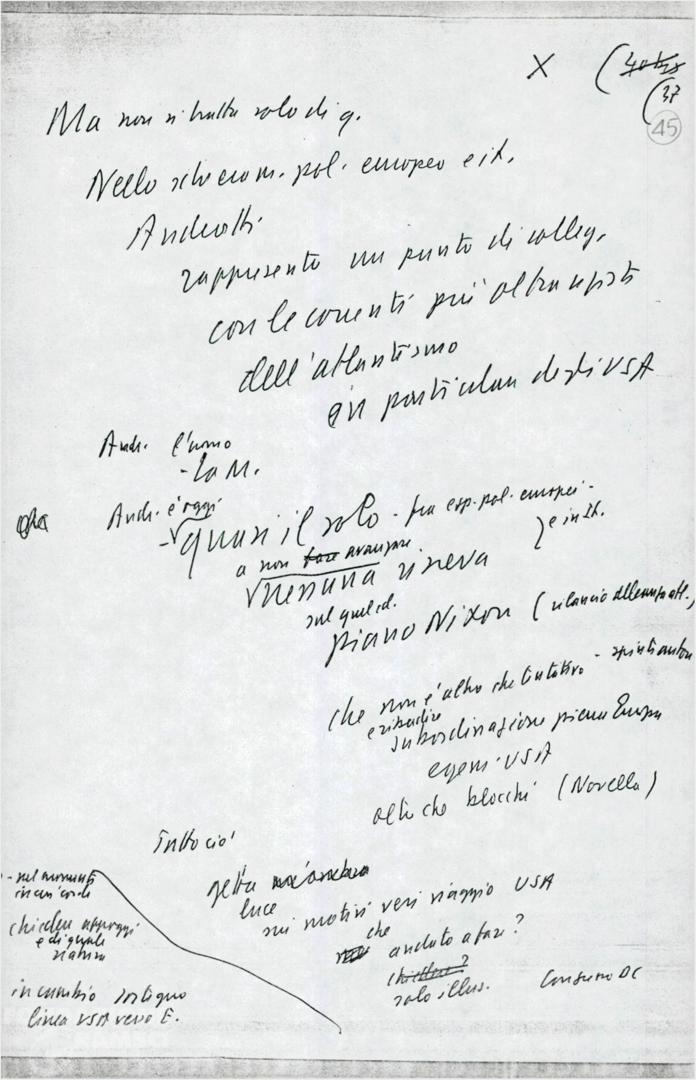 X
(37
45
Ma non si tratta solo di q.
Nello schieram. pol. europeo e it.
Andreotti
rappresenta un punto di colleg.
con le correnti più oltranziste
dell'atlantismo
in particolare degli USA
Andr. l'uomo
- la M.
Andr. è oggi
- quasi il solo - fra esp. pol. europei -
e in It.
a non avanzare
nessuna riserva
sul quel d.
piano Nixon (rilancio dell'
che non è altro che tentativo -
e ribadire
subordinazione piena Europa
egem. USA
altro che blocchi (Novella)
Tutto ciò
getta
luce
sui motivi veri viaggio USA
che
andato a fare?
solo illus.
Consenso DC
- nel momento
in cui
chiedere appoggi
e di quale
natura
in cambio sostegno
linea USA verso E.